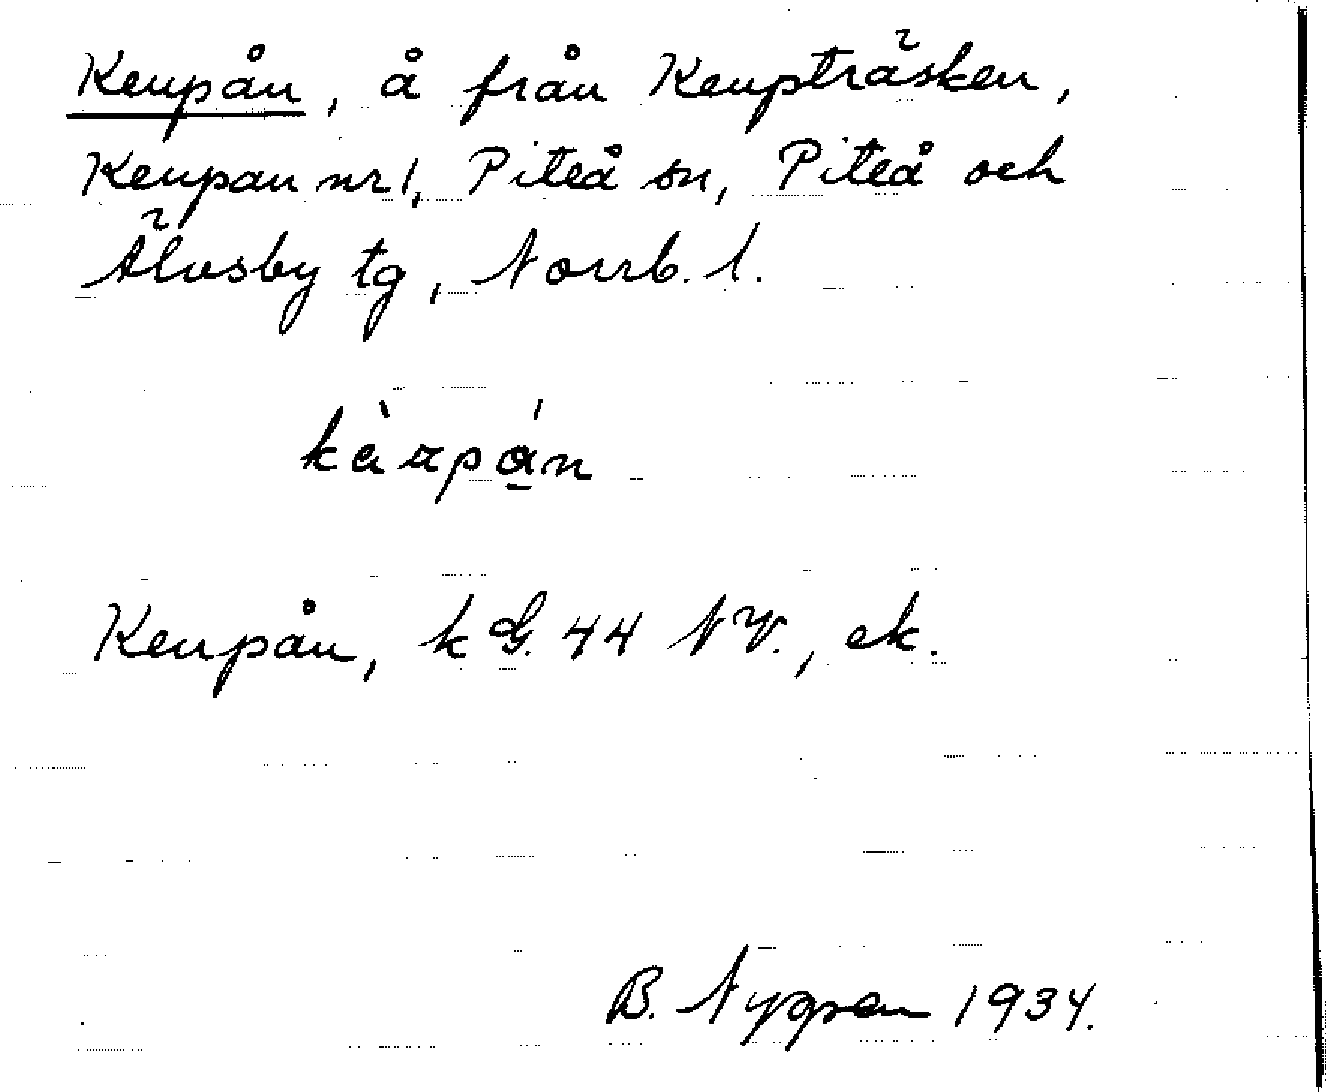 Keupån, å från Keupträsken,
Keupan nr 1, Piteå sn, Piteå och
Älvsby tg, Norrb. l.
Keupån, k G. 44 NV., ek.
B. Nygren 1934.